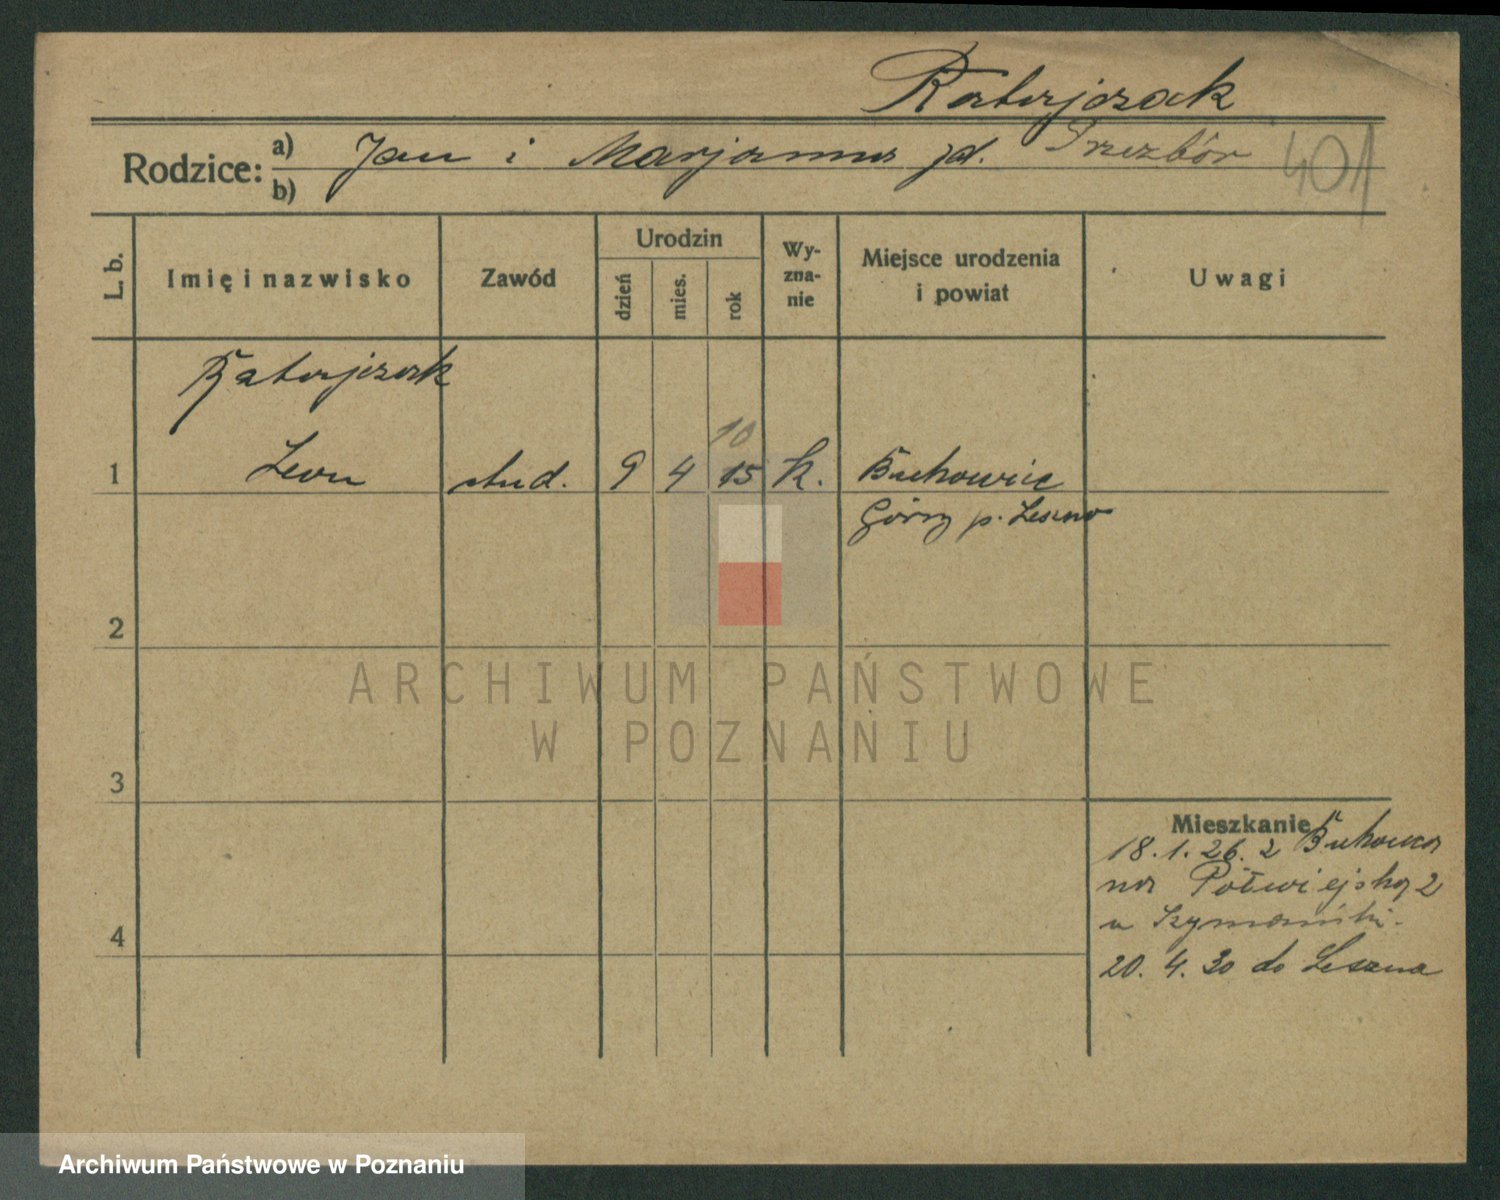 Ratajczak
Rodzice: a) Jan i Marjanna zd. Przezbór 401
b)
L. b. Imię i nazwisko Zawód Urodzin dzień mies. rok Wy-zna-nie Miejsce urodzenia i powiat Uwagi
Ratajczak
10
1 Leon stud. 9 4 15 k. Bukowiec
Górny p. Leszno
2
3
4
Mieszkanie
18.1.26. z Bukowca
na Półwiejską 2
u Szymański
20.4.30 do Leszna
ARCHIWUM PAŃSTWOWE
W POZNANIU
Archiwum Państwowe w Poznaniu